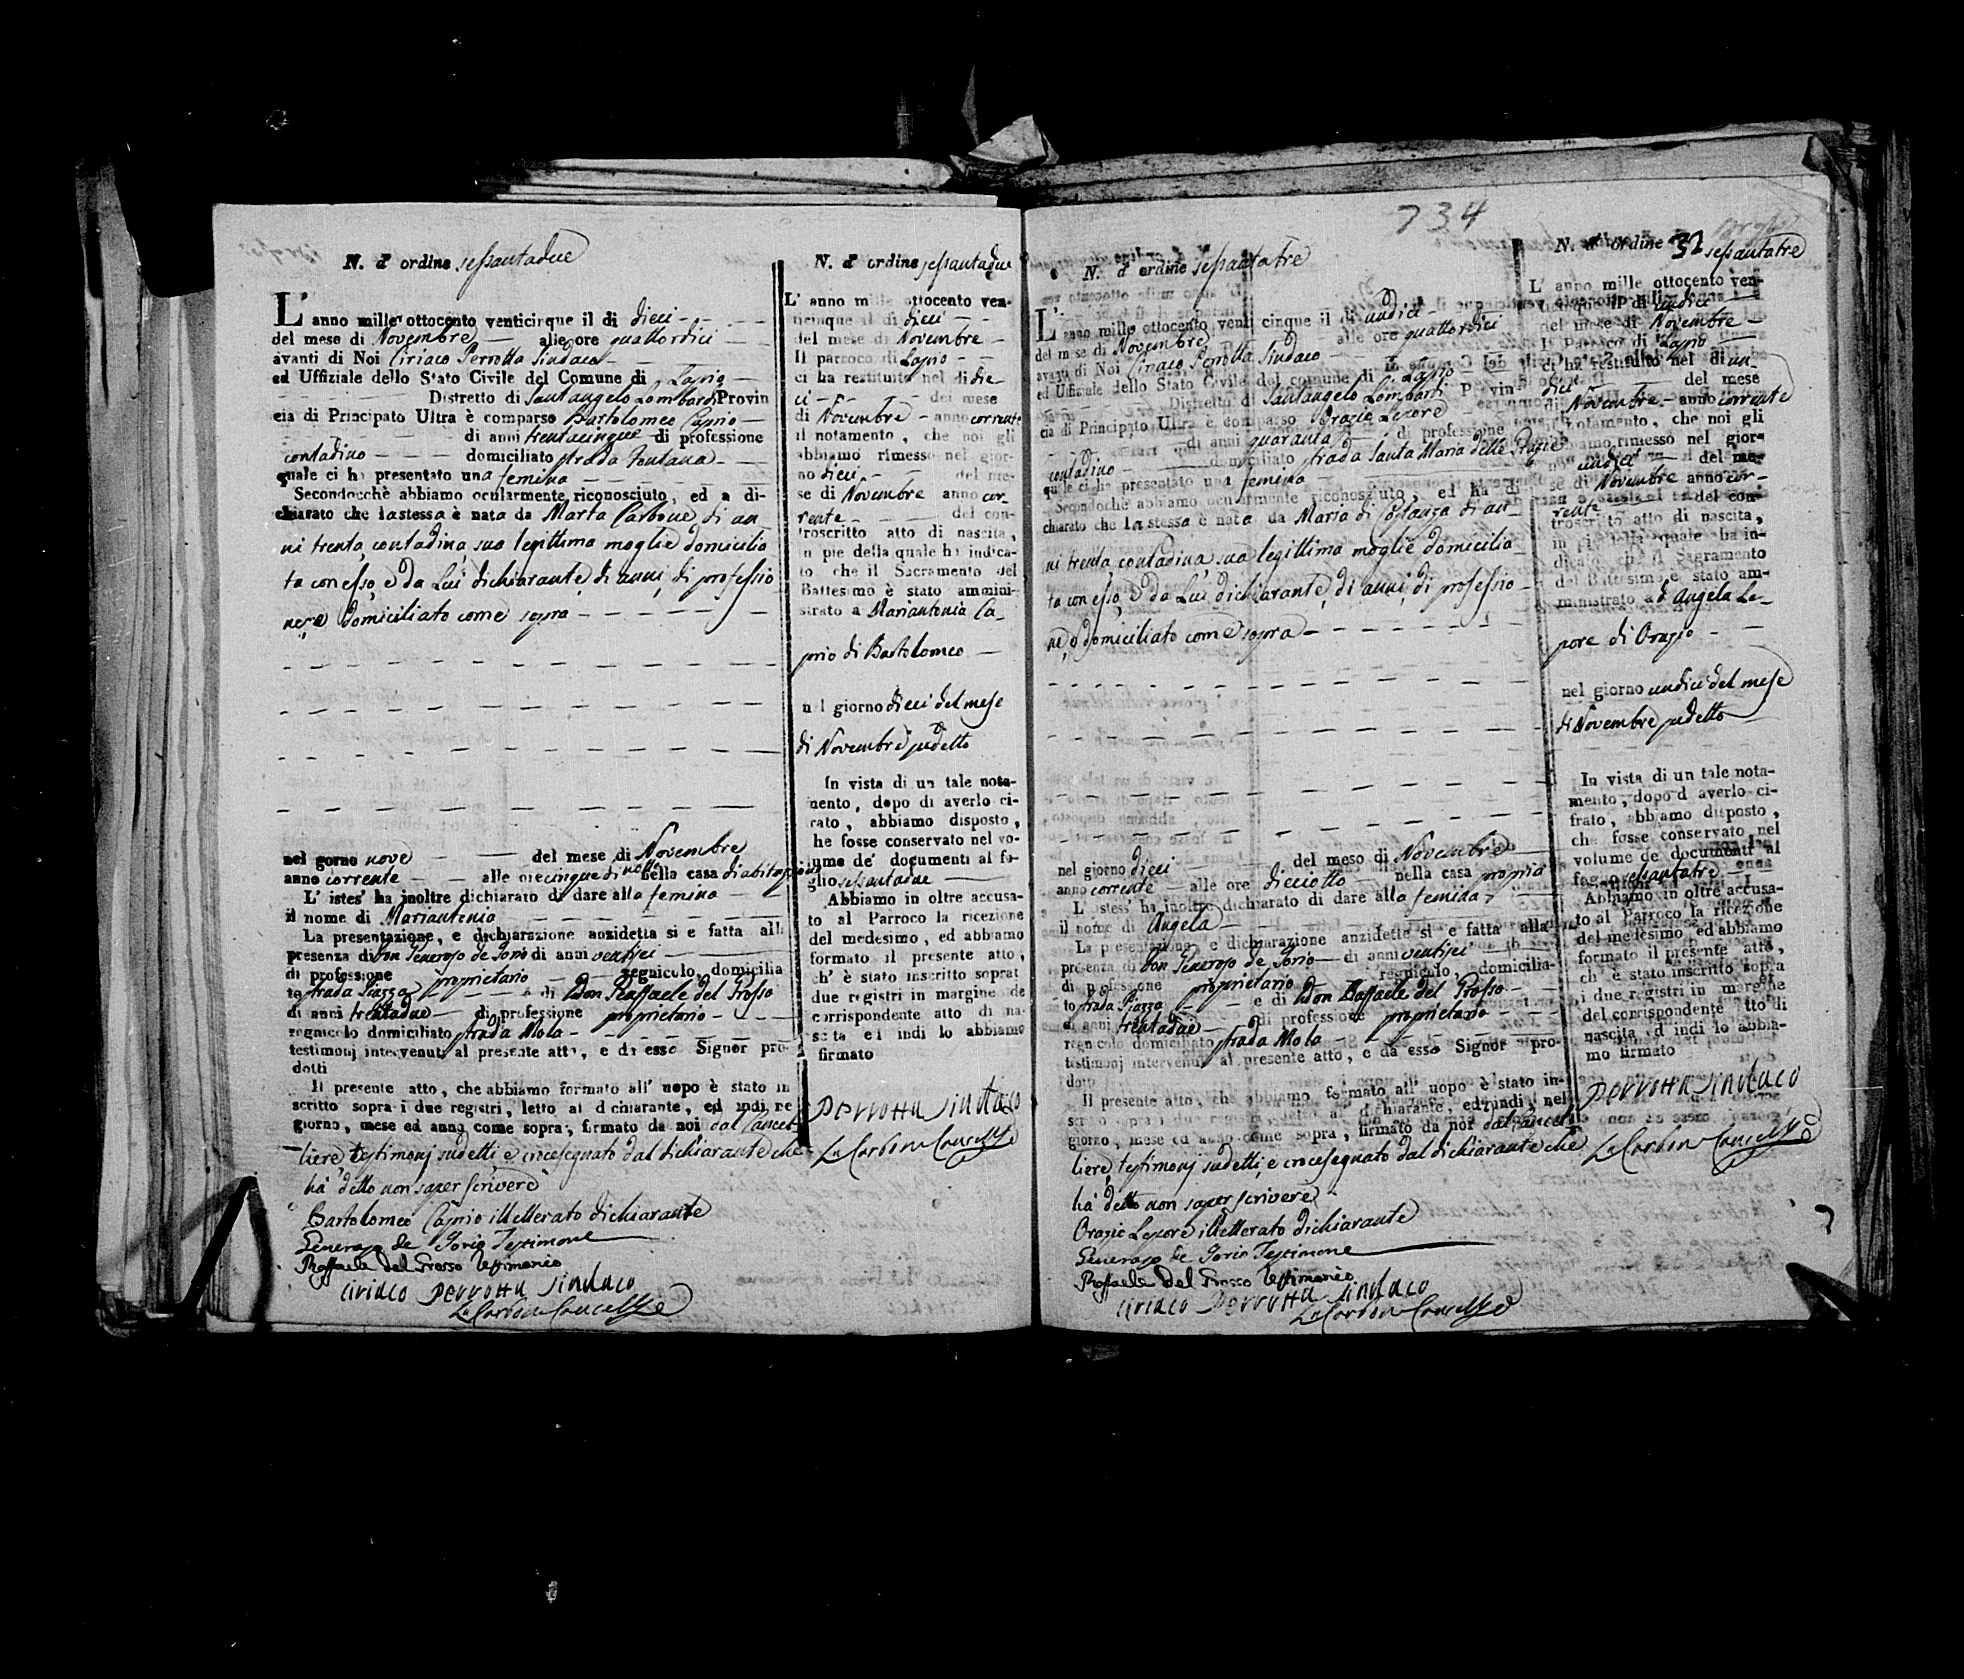 N. d' ordine sessantadue
L' anno mille ottocento venticinque il di dieci
del mese di Novembre alle ore quattordici
avanti di Noi Ciriaco Perrotta Sindaco
ed Uffiziale dello Stato Civile del Comune di Lapio
Distretto di Santangelo Lombardi Provin
cia di Principato Ultra è comparso Bartolomeo Caprio
di anni trentacinque di professione
contadino domiciliato strada Fontana
quale ci ha presentato una femina
Secondocchè abbiamo ocularmente riconosciuto, ed a di-
chiarato che la stessa è nata da Marta Carbone di an
ni trenta contadina sua legittima moglie domicilia
ta con esso, e da Lui dichiarante di anni, di professio
ne, e domiciliato come sopra
nel gorno nove del mese di Novembre
anno corrente alle ore cinque di notte nella casa d'abitazione
L' istes' ha inoltre dichiarato di dare alla femina
il nome di Mariantonia
La presentazione, e dichiarazione anzidetta si e fatta alla
presenza di Don Generoso de Iorio di anni ventisei
di professione proprietario regnicolo, domicilia
to strada Piazza e di Don Raffaele del Grosso
di anni trentadue di professione proprietario
regnicolo domiciliato strada Mola
testimonj intervenuti al presente atto, e da esso Signor pro-
dotti
Il presente atto, che abbiamo formato all' uopo è stato in
scritto sopra i due registri, letto al dichiarante, ed indi ne
giorno, mese ed anno come sopra, firmato da noi dal Cancel
liere, testimonj sudetti, e crocesegnato dal dichiarante che
ha detto non saper scrivere
Bartolomeo Caprio illetterato dichiarante
Generoso de Iorio Testimone
Raffaele del Grosso Testimonio
Ciriaco Perrotta Sindaco
N. d' ordine sessantadue
L' anno mille ottocento ven-
ticinque il di dieci
del mese di Novembre
Il parroco di Lapio
ci ha restituito nel di die
ci del mese
di Novembre anno corrente
il notamento, che noi gli
abbiamo rimesso nel gior-
no dieci del me-
se di Novembre anno cor-
rente del con-
troscritto atto di nascita,
in pie della quale ha indica-
to che il Sacramento del
Battesimo è stato ammini-
strato a Mariantonia Ca
prio di Bartolomeo
nel giorno dieci del mese
di Novembre sudetto
In vista di un tale nota-
mento, dopo di averlo ci-
frato, abbiamo disposto,
che fosse conservato nel vo-
lume de' documenti al fo-
glio sessantadue
Abbiamo in oltre accusa-
to al Parroco la ricezione
del medesimo, ed abbiamo
formato il presente atto,
ch' è stato inscritto soprat
due registri in margine de
corrispondente atto di na-
scita ed indi lo abbiamo
firmato
Perrotta Sindaco
734
N. d' ordine sessantatre
L' anno mille ottocento venti cinque il di undici
del mese di Novembre alle ore quattordici
avanti di Noi Ciriaco Perrotta Sindaco
ed Uffiziale dello Stato Civile del comune di Lapio
Distretto di Santangelo Lombardi Provin
cia di Principato Ultra è comparso Orazio Lepore
di anni quaranta di professione
contadino domiciliato strada Santa Maria delle Grazie
quale ci ha presentato una femina
Secondochè abbiamo ocularmente riconosciuto, ed ha di
chiarato che la stessa è nata da Maria di Costanza di an
ni trenta contadina sua legittima moglie domicilia
ta con esso, e da Lui dichiarante, di anni, di professio
ne, e domiciliato come sopra
nel giorno dieci del mese di Novembre
anno corrente alle ore dieciotto nella casa propria
L' istess' ha inoltre dichiarato di dare alla femina
il nome di Angela
La presentazione, e dichiarazione anzidette si e fatta alla
presenza di Don Generoso de Iorio di anni ventisei
di professione proprietario regnicolo, domicilia-
to strada Piazza e di Don Raffaele del Grosso
di anni trentadue di professione proprietario
regnicolo domiciliato strada Mola
testimonj intervenuti al presente atto, e da esso Signor pro-
dotti
Il presente atto, che abbiamo formato all' uopo è stato in-
scritto sopra i due registri, letto al dichiarante, ed indi, nel
giorno, mese ed anno come sopra, firmato da noi dal Cancel
liere, testimonj sudetti, e crocesegnato dal dichiarante che
ha detto non saper scrivere
Orazio Lepore illetterato dichiarante
Generoso de Iorio Testimone
Raffaele del Grosso Testimonio
Ciriaco Perrotta Sindaco
N. d' ordine 32 sessantatre
L' anno mille ottocento ven-
ticinque il di undici
del mese di Novembre
Il Parroco di Lapio
ci ha restituito nel di un
dici del mese
di Novembre anno corrente
il notamento, che noi gli
abbiamo rimesso nel gior-
no undici del me-
se di Novembre anno cor-
rente del con-
troscritto atto di nascita,
in pie della quale ha in-
dicato che il Sagramento
del Battesimo è stato am-
ministrato ad Angela Le
pore di Orazio
nel giorno undici del mese
di Novembre sudetto
In vista di un tale nota-
mento, dopo d averlo ci-
frato, abbiamo disposto,
che fosse conservato nel
volume de documenti al
foglio sessantatre
Abbiamo in oltre accusa-
to al Parroco la ricezione
del medesimo, ed abbiamo
formato il presente atto,
ch' è stato inscritto sopra
i due registri in margine
del corrispondente atto di
nascita, ed indi lo abbia-
mo firmato
Perrotta Sindaco